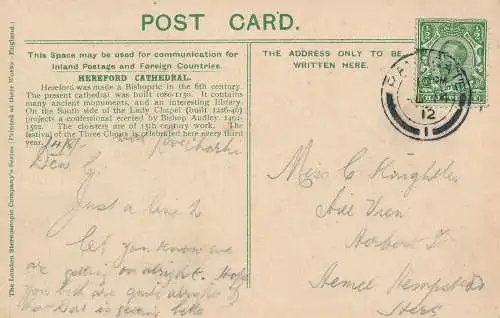 POST CARD.
This Space may be used for communication for
Inland Postage and Foreign Countries.
HEREFORD CATHEDRAL.
Hereford was made a Bishopric in the 6th century.
The present cathedral was built 1080-1130. It contains
many ancient monuments, and an interesting library.
On the South side of the Lady Chapel (built 1226-46)
projects a confessional erected by Bishop Audley, 1492-
1502. The cloisters are of 15th century work. The
festival of the Three Choirs is celebrated here every third
year.
The London Stereoscopic Company's Series (Printed at their Works - England.)
with
Dear
Just a line to
let you know we
are getting on alright. Hope
you both are quite alright
is getting better
THE ADDRESS ONLY TO BE
WRITTEN HERE.
12
1
Miss C
Harbour
Hemel Hempstead
Herts